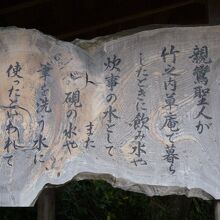 親鸞聖人が
竹之内草庵で暮ら
したときに飲み水や
炊事の水として
また
硯の水や
筆を洗う水に
使ったといわれて